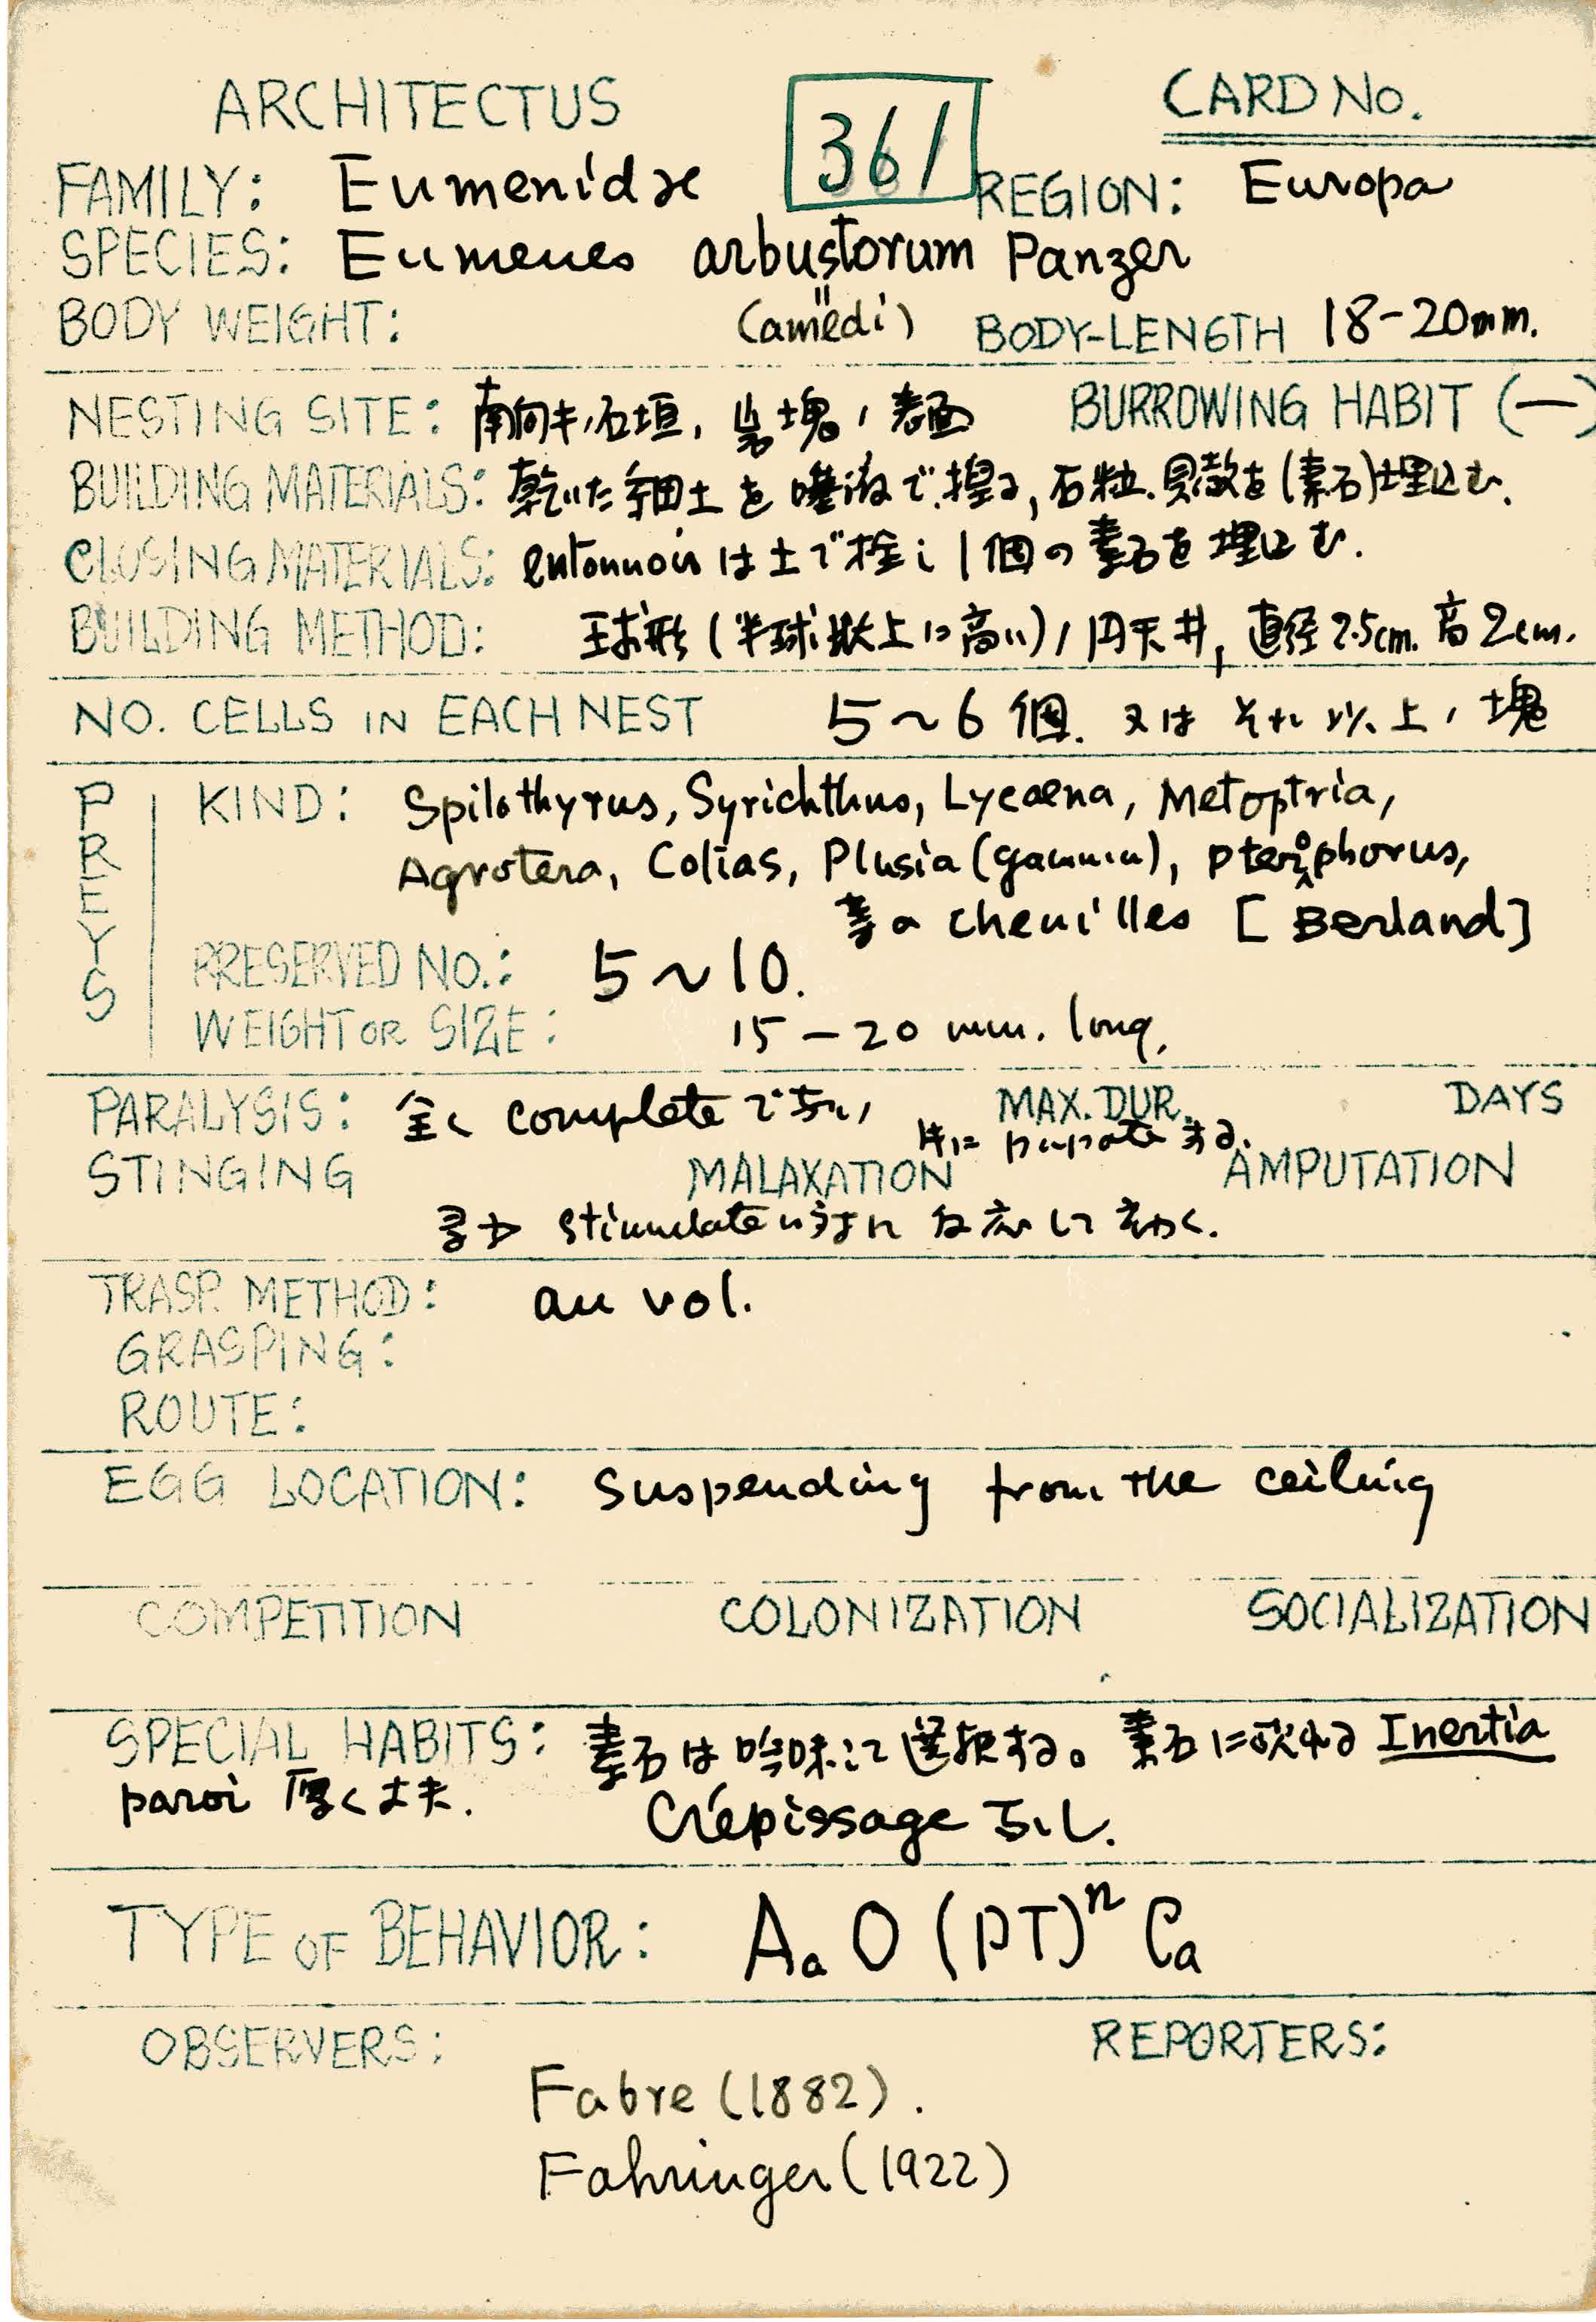 ARCHITECTUS 361 CARD No.
FAMILY: Eumenidae REGION: Europa
SPECIES: Eumenes arbustorum Panzer
BODY WEIGHT: (amedi) BODY-LENGTH 18-20mm.
NESTING SITE: 南向キノ石垣, 岩塊ノ表面 BURROWING HABIT (—)
BUILDING MATERIALS: 乾いた細土を唾液で捏る, 石粒.貝殻を(素石)埋込む.
CLOSING MATERIALS: entonnoir は土で栓し1個の素石を埋込む.
BUILDING METHOD: 球形(半球状上に高い)ノ円天井, 直径2.5cm. 高2cm.
NO. CELLS IN EACH NEST 5~6個. 又はそれ以上ノ塊
PREYS KIND: Spilothyrus, Syrichthus, Lycaena, Metoptria,
Agrotera, Colias, Plusia (gamma), pterophorus,
等の chenilles [Berland]
PRESERVED NO.: 5~10.
WEIGHT OR SIZE: 15-20 mm. long.
PARALYSIS: 全く complete でない MAX. DUR. DAYS
pupate する.
STINGING MALAXATION AMPUTATION
stimulate 反応して動く.
TRASP. METHOD: au vol.
GRASPING:
ROUTE:
EGG LOCATION: suspending from the ceiling
COMPETITION COLONIZATION SOCIALIZATION
SPECIAL HABITS: 素石は吟味して選択する。素石に於ける Inertia
paroi 厚く丈夫. Crépissage なし.
TYPE OF BEHAVIOR: Aa O (PT)ⁿ Ca
OBSERVERS: REPORTERS:
Fabre (1882).
Fahringer (1922)